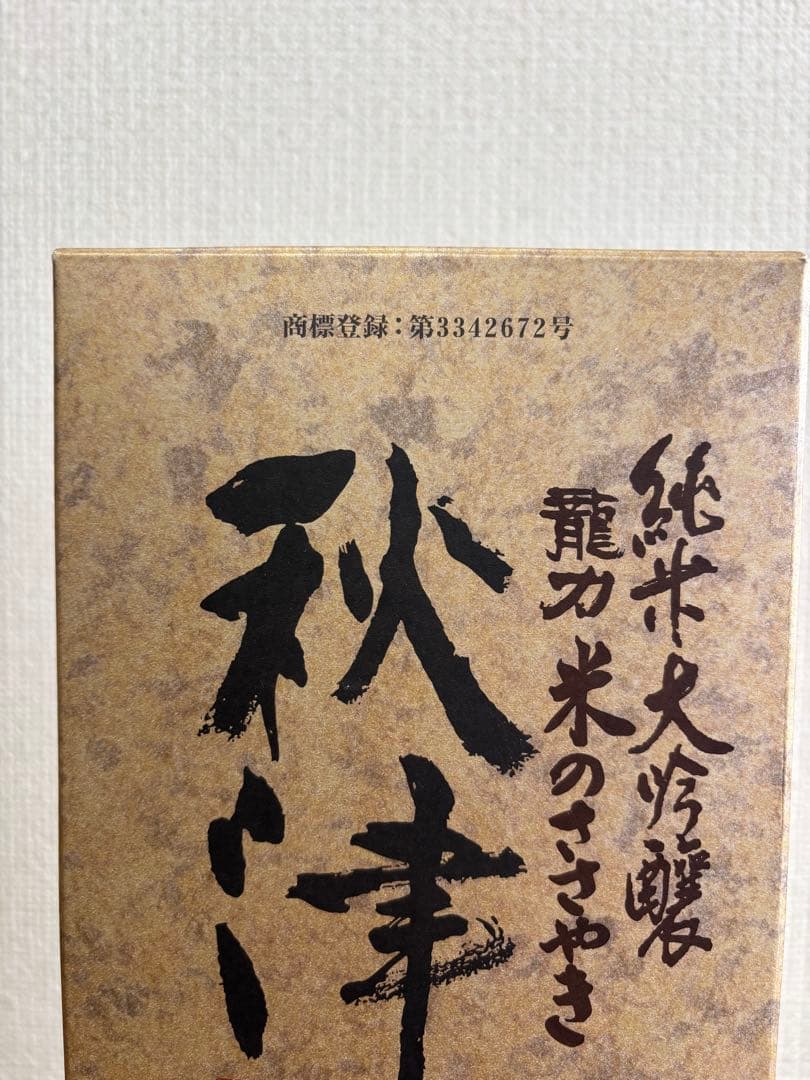 商標登録：第3342672号
純米大吟醸
龍力 米のささやき
秋津